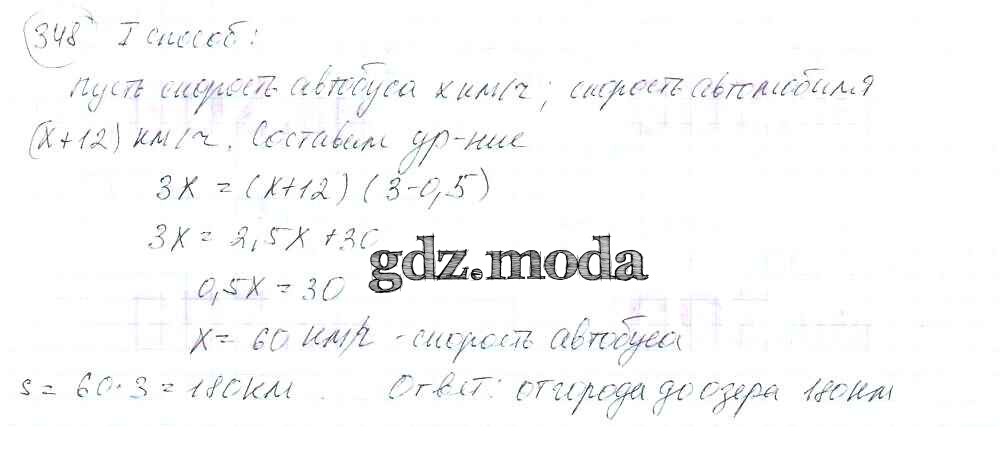 348 I способ:
Пусть скорость автобуса х км/ч; скорость автомобиля
(х+12) км/ч. Составим ур-ние
3х = (х+12) (3-0,5)
3х = 2,5х + 30
gdz.moda
0,5х = 30
х = 60 км/ч - скорость автобуса
s = 60·3 = 180км. Ответ: от города до озера 180км